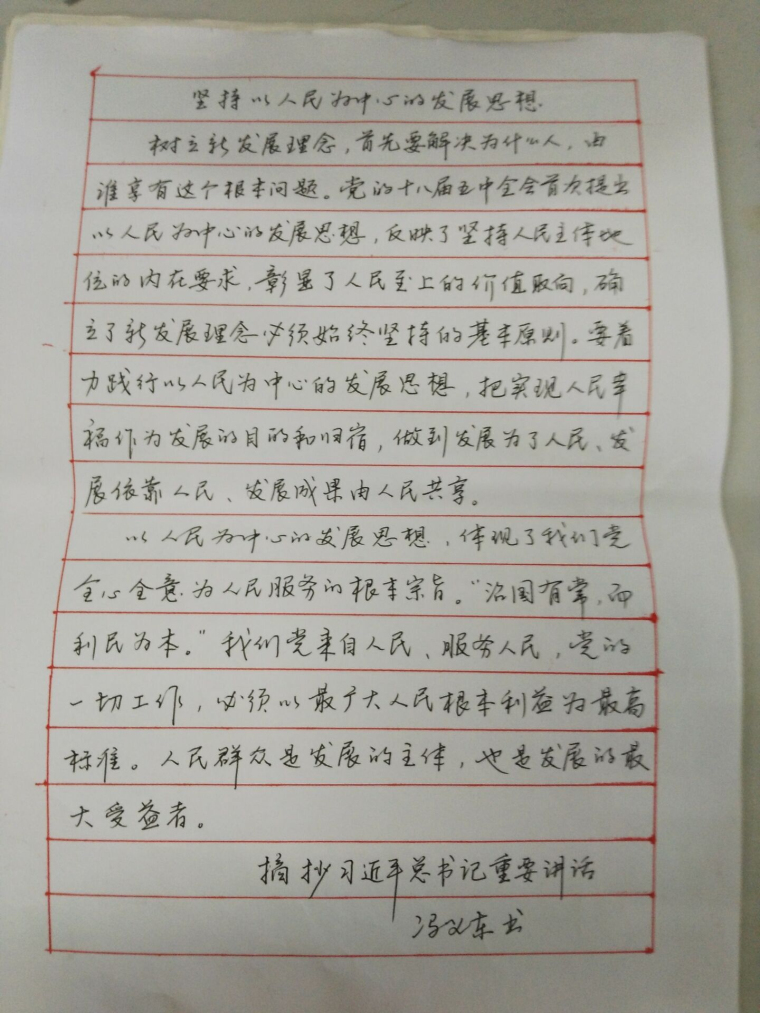 坚持以人民为中心的发展思想
树立新发展理念，首先要解决为什么人，由
谁享有这个根本问题。党的十八届五中全会首次提出
以人民为中心的发展思想，反映了坚持人民主体地
位的内在要求，彰显了人民至上的价值取向，确
立了新发展理念必须始终坚持的基本原则。要着
力践行以人民为中心的发展思想，把实现人民幸
福作为发展的目的和归宿，做到发展为了人民、发
展依靠人民、发展成果由人民共享。
以人民为中心的发展思想，体现了我们党
全心全意为人民服务的根本宗旨。“治国有常，而
利民为本。”我们党来自人民、服务人民，党的
一切工作，必须以最广大人民根本利益为最高
标准。人民群众是发展的主体，也是发展的最
大受益者。
摘抄习近平总书记重要讲话
冯义东书